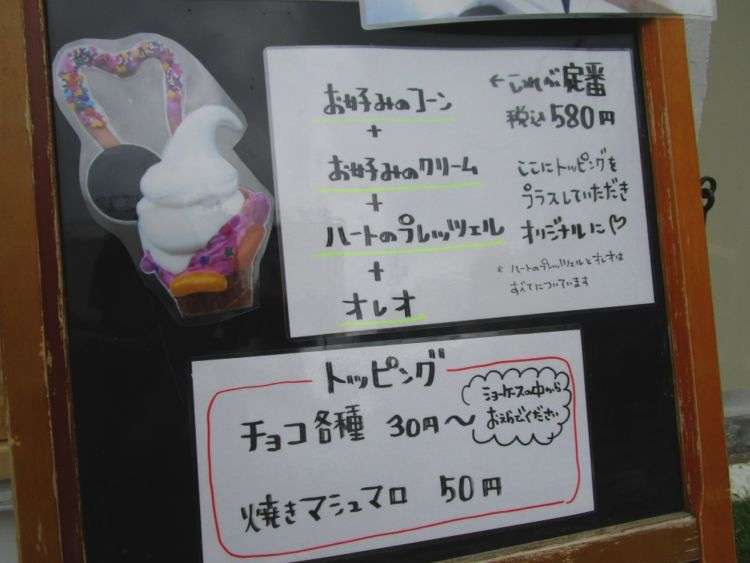 お好みのコーン ← これが定番
+ 税込580円
お好みのクリーム ここにトッピングを
+ プラスしていただき
ハートのプレッツェル オリジナルに♡
+ * ハートのプレッツェルとオレオは
オレオ すべてについています
トッピング
チョコ各種 30円〜 ショーケースの中から
おえらびください
焼きマシュマロ 50円